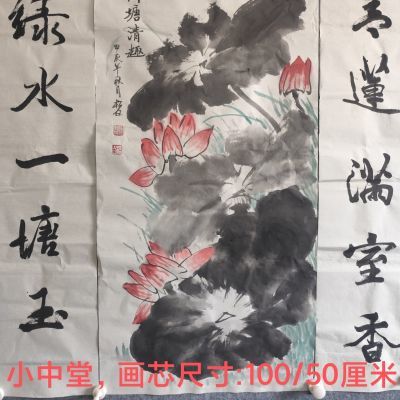 蓮满室香
塘清趣
甲辰年秋月
绿水一塘玉
小中堂，画芯尺寸:100/50厘米